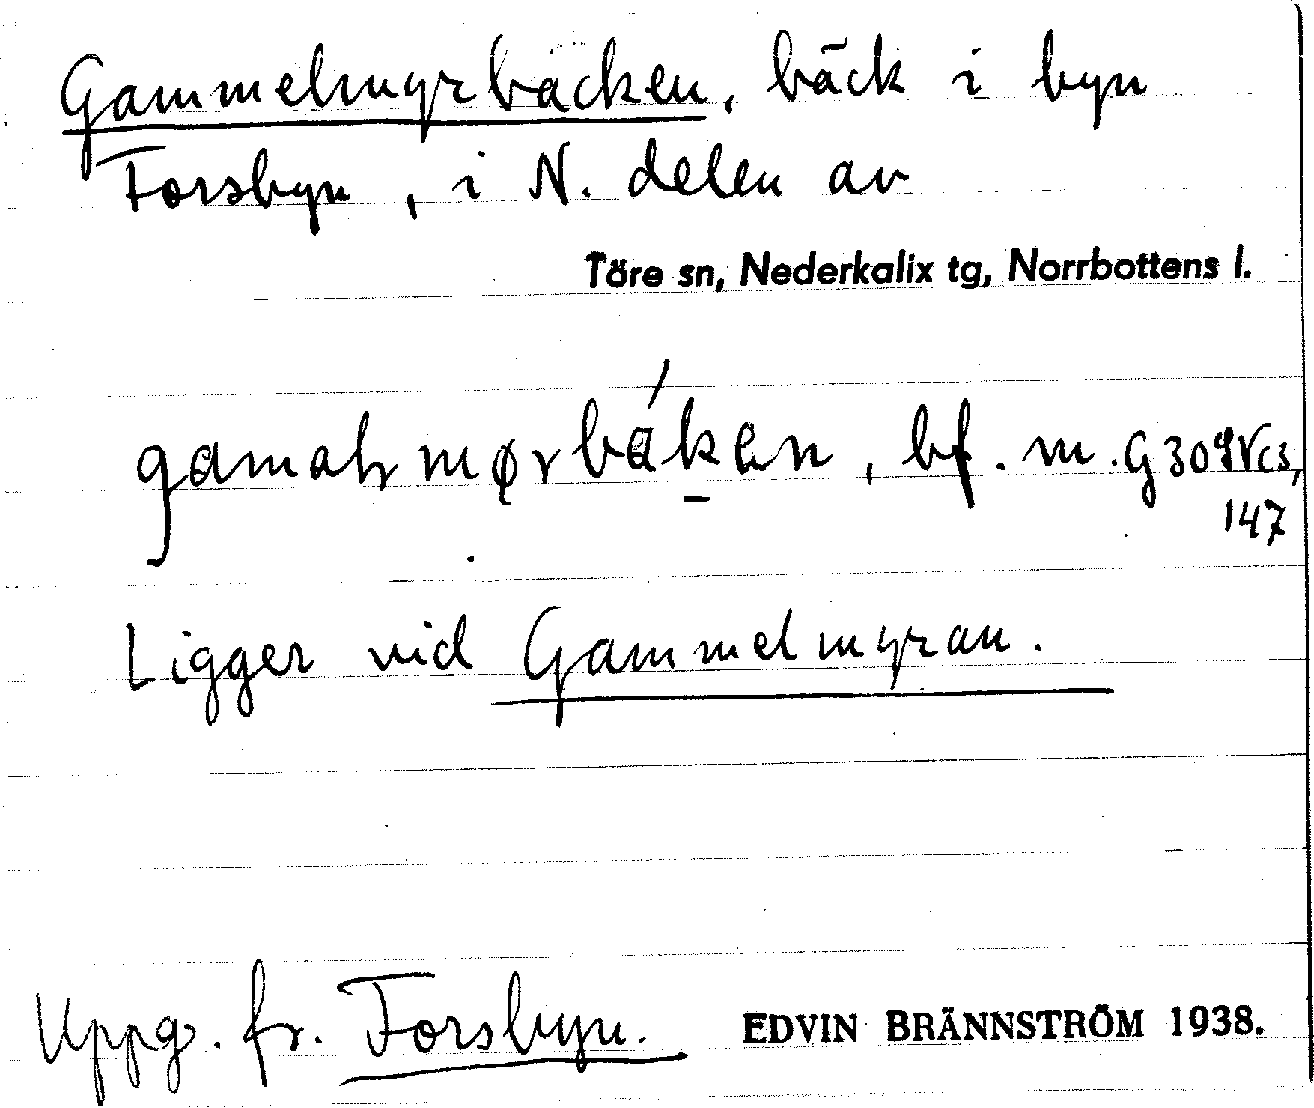 Gammelmyrbäcken, bäck i byn
Forsbyn, i N. delen av
Töre sn, Nederkalix tg, Norrbottens l.
bf. m. G 309
147
Ligger vid Gammelmyran.
Uppg. fr. Forsbyn. EDVIN BRÄNNSTRÖM 1938.